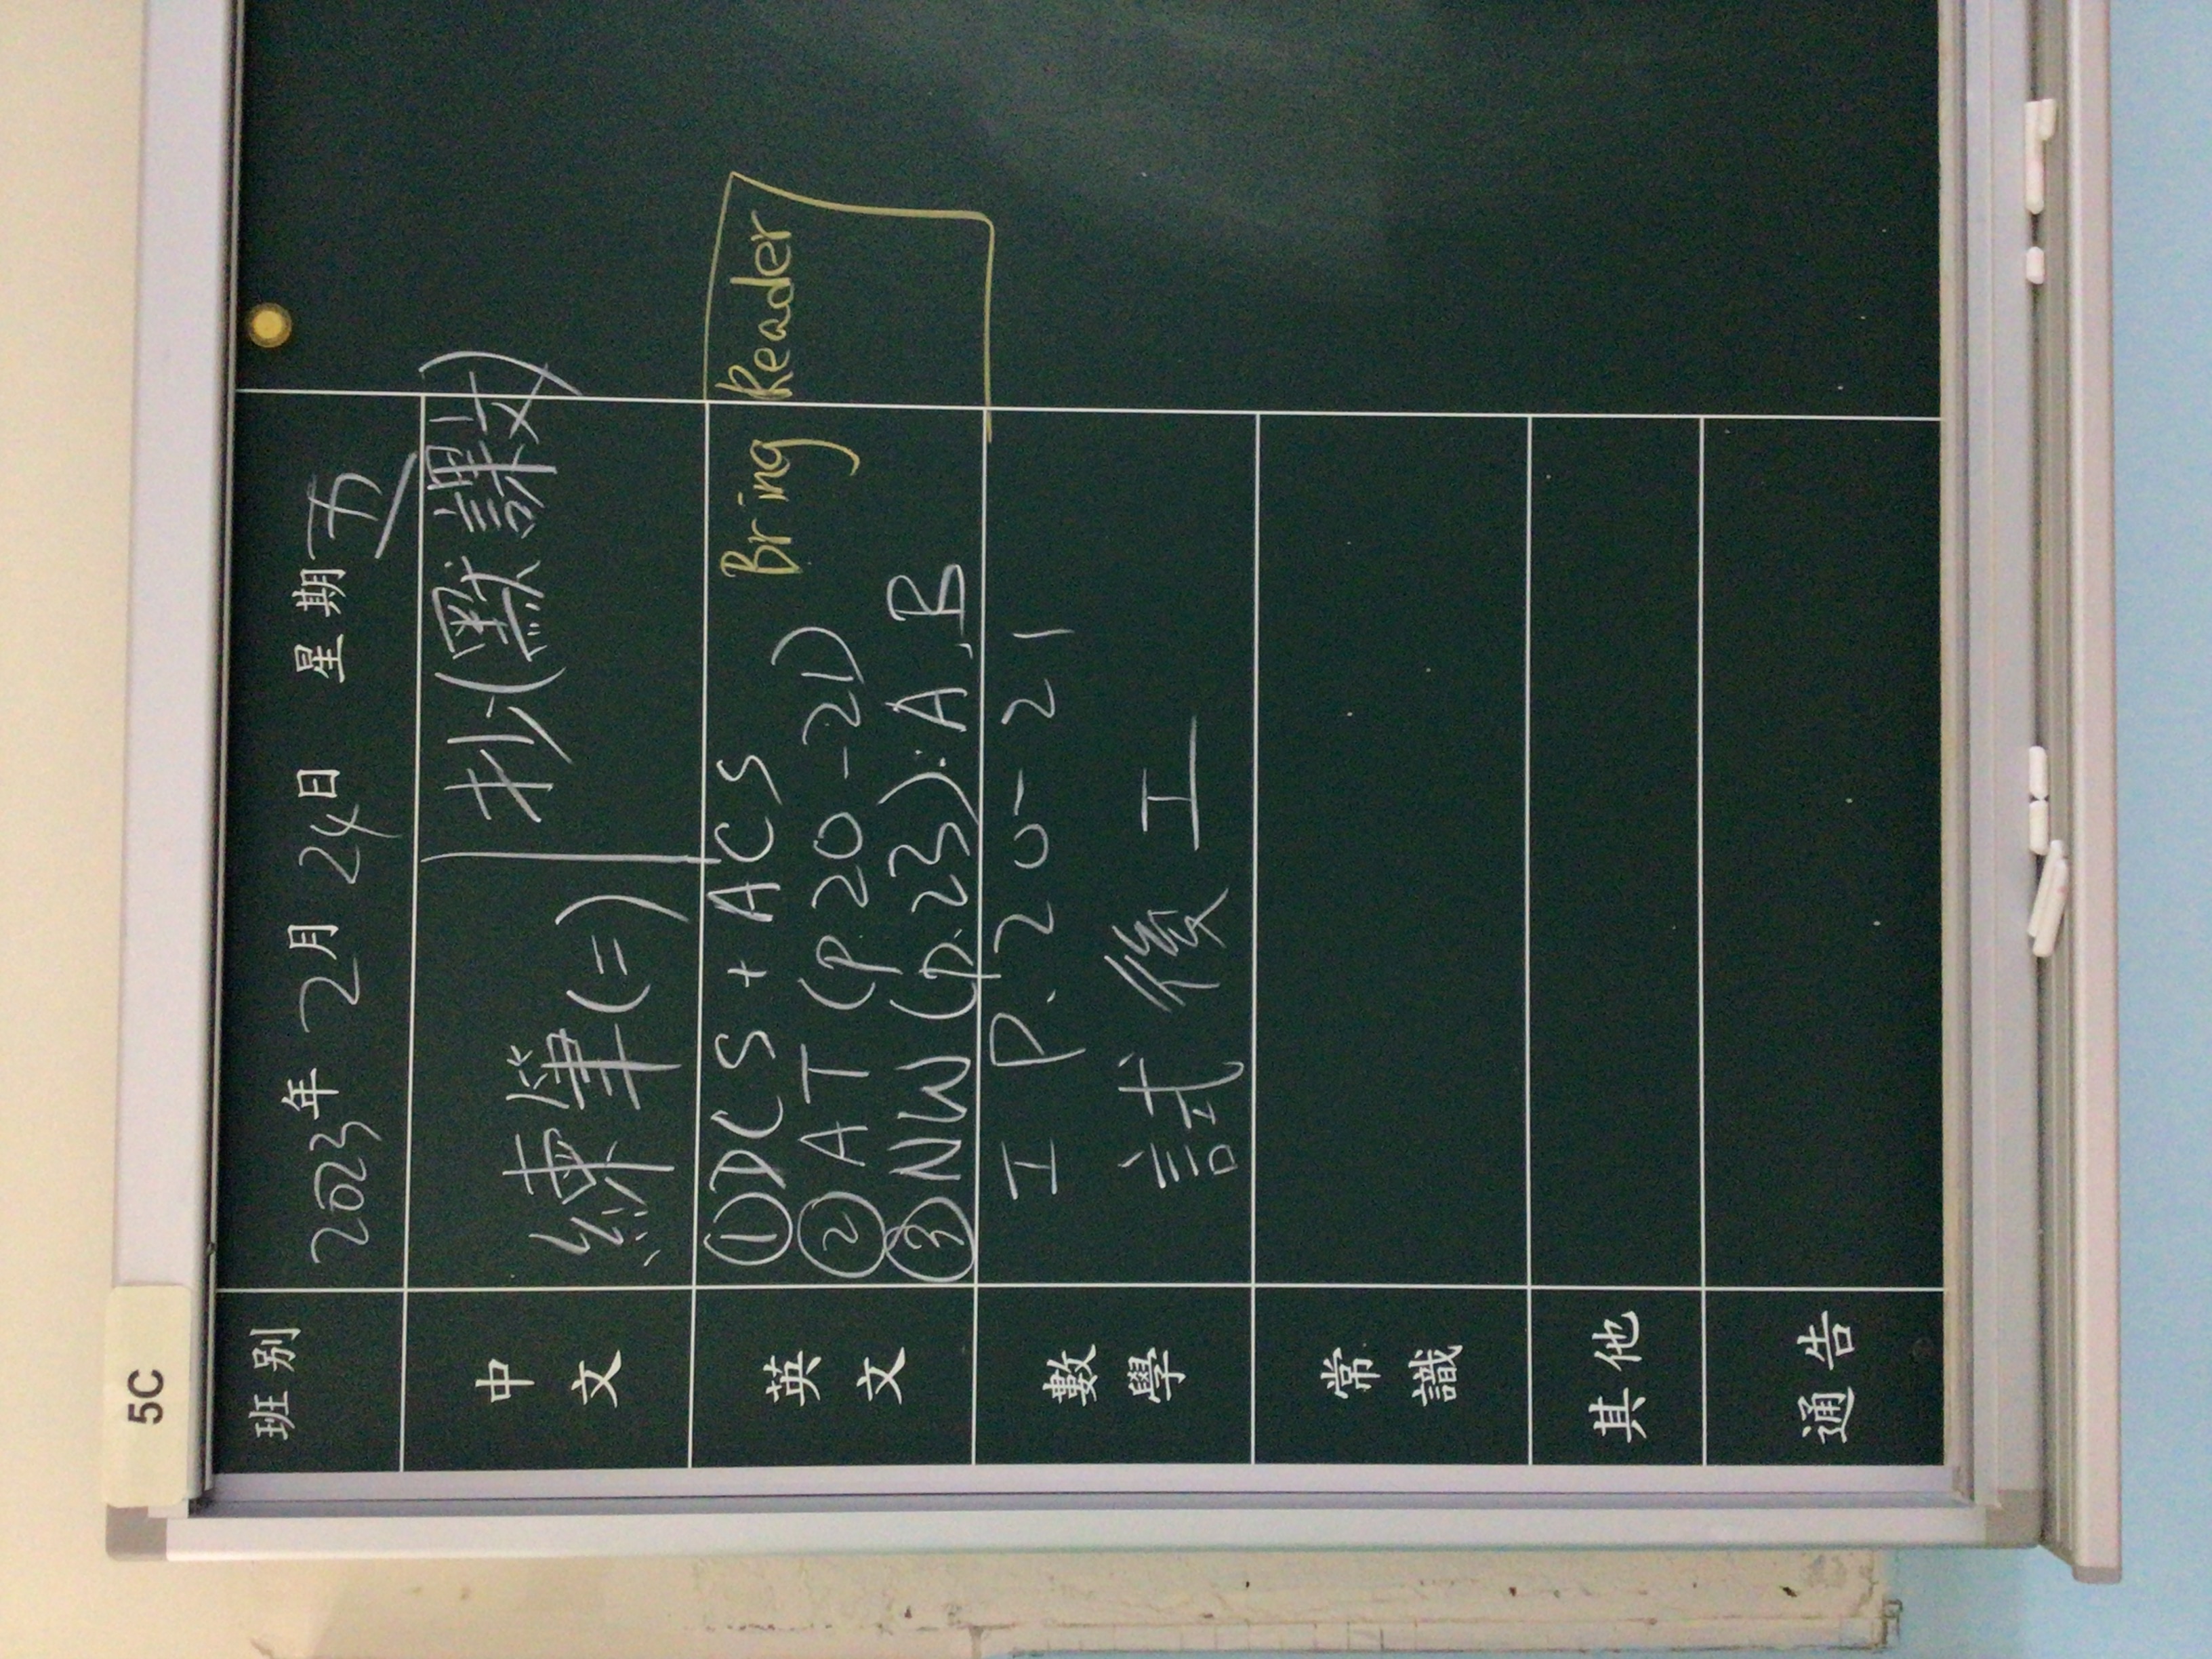 5C
班別 2023年 2月 24日 星期五
中文 練筆(二) 抄(默課文)
英文 ①DCS + ACS Bring Reader
②AT (p 20-21)
③NW (p.23): A, B
數學 工 P. 20-21
試後工
常識
其他
通告